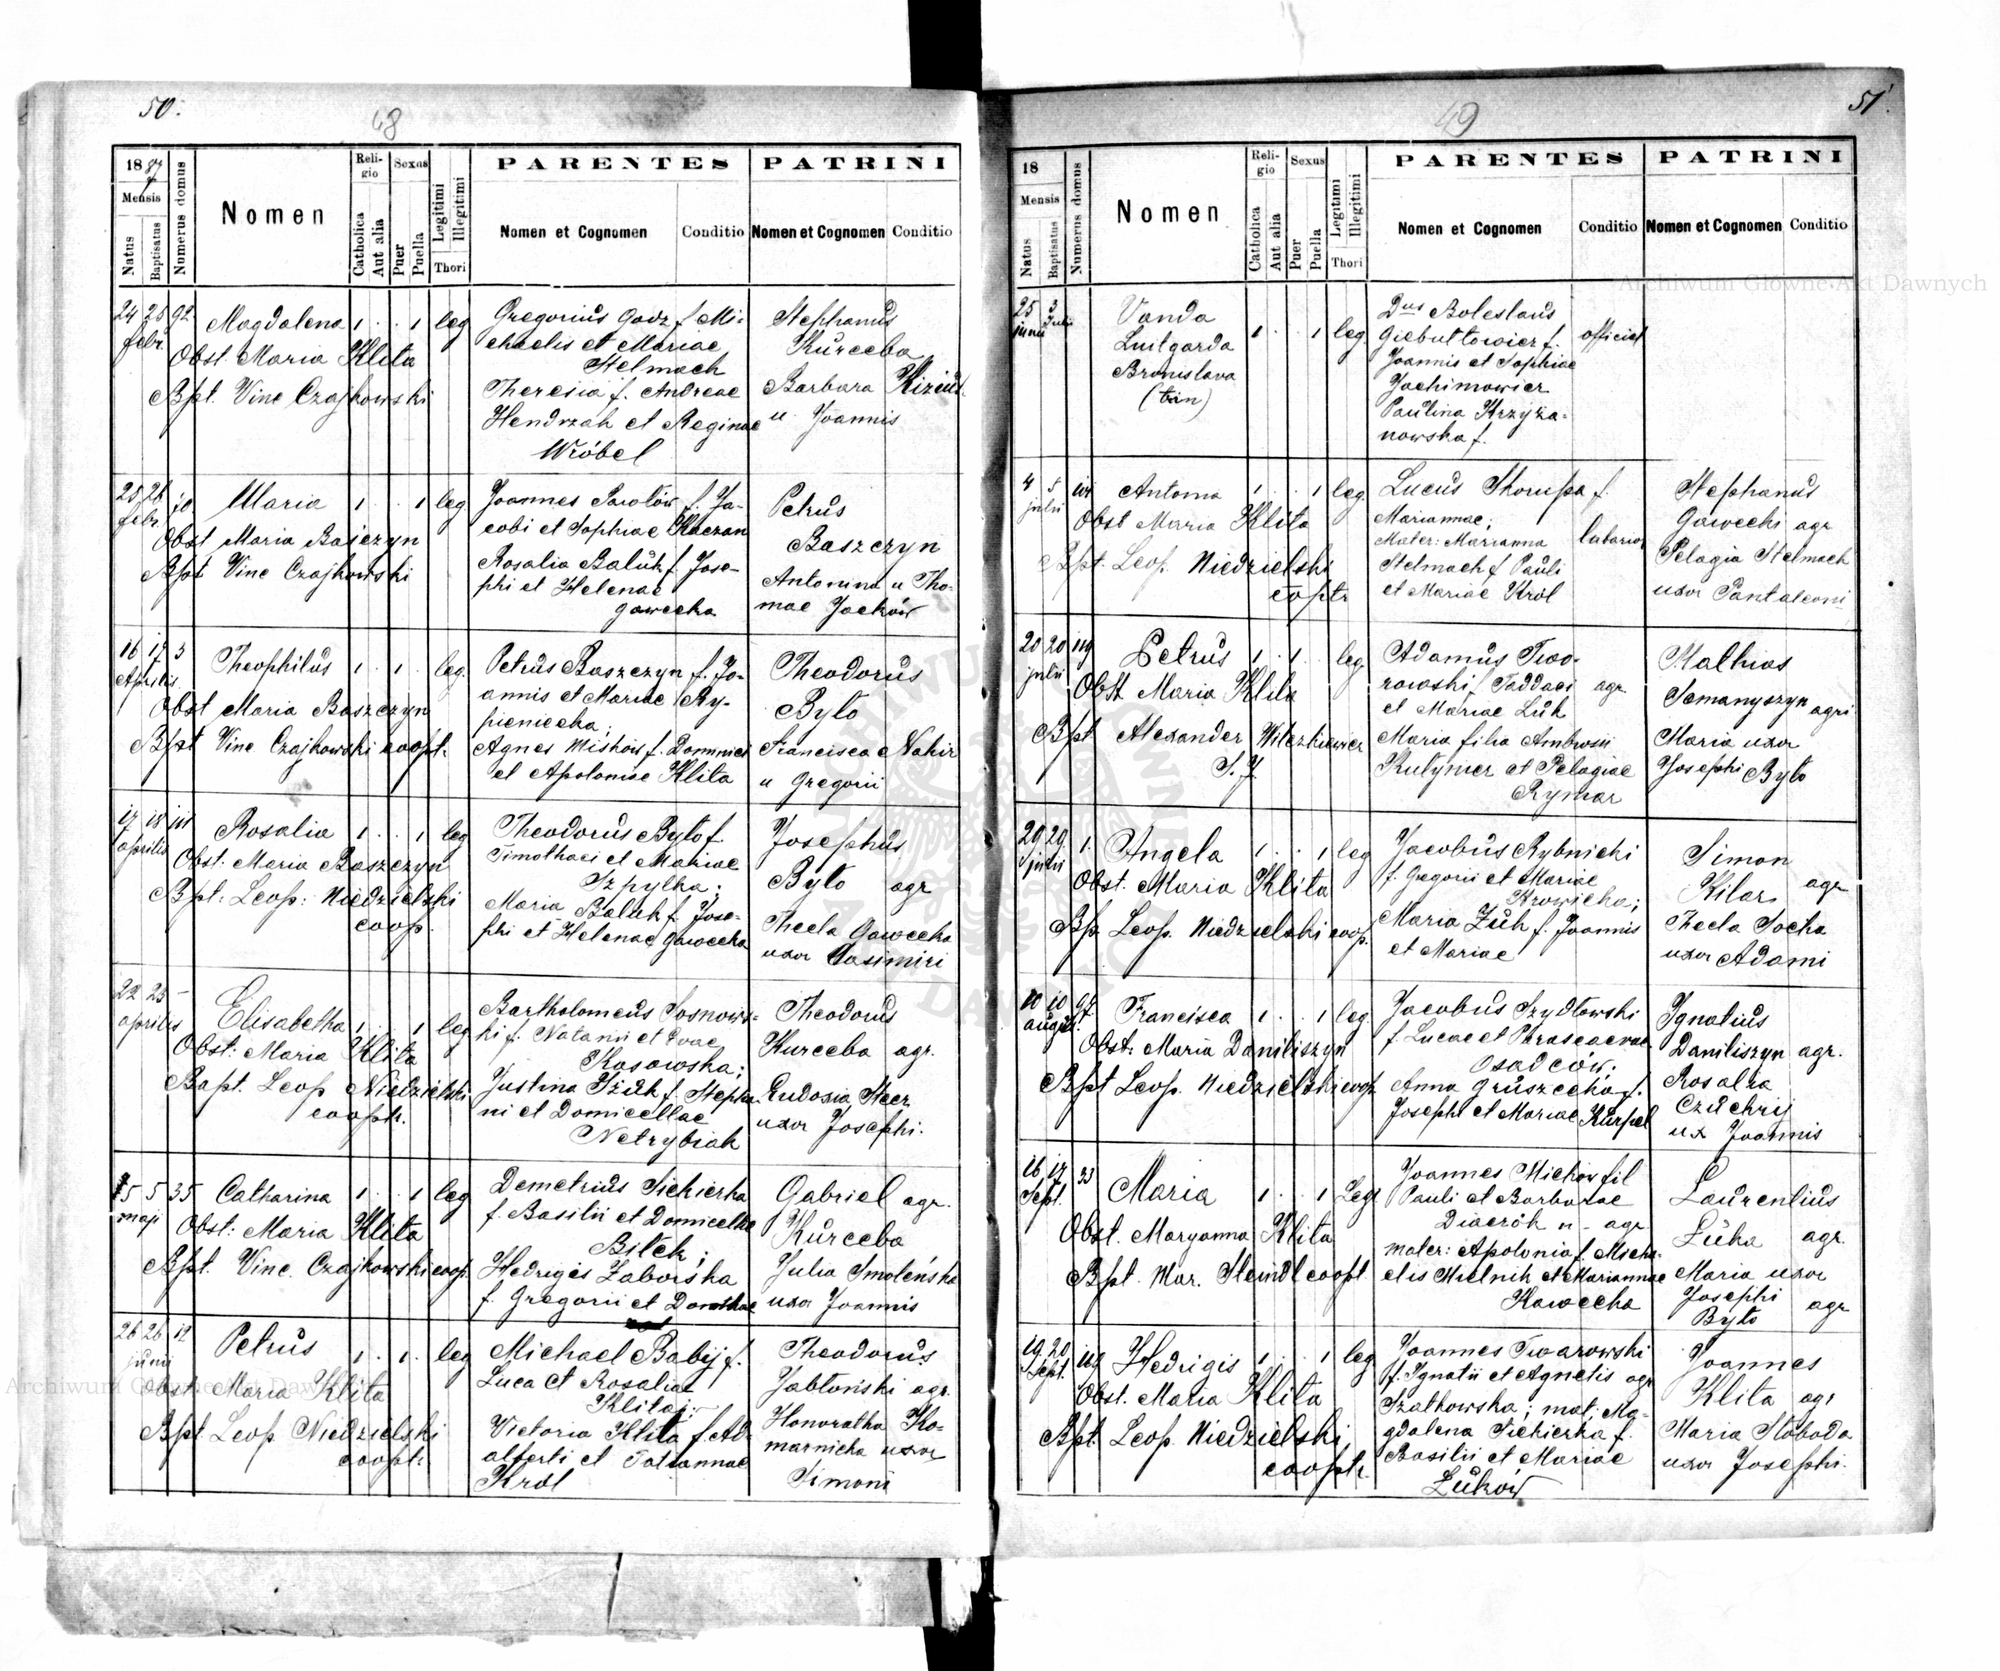 50.
48
1887
Mensis
Natus
Baptisatus
Numerus domus
Nomen
Religio
Catholica
Aut alia
Sexus
Puer
Puella
Legitimi
Illegitimi
Thori
PARENTES
Nomen et Cognomen
Conditio
PATRINI
Nomen et Cognomen
Conditio
24 25 92
febr.
Magdalena 1 . . 1 leg
Obst. Maria Klita
Bpt. Vinc Czajkowski
Gregorius Gadz f. Mi-
chaelis et Mariae
Stelmach
Theresia f. Andreae
Hendrzak et Reginae
Wróbel
Stephanus
Kurceba
Barbara
u. Joannis
25 26 10
febr.
Maria 1 . . 1 leg
Obst Maria Baszczyn
Bpt Vinc Czajkowski
Joannes f. Ja-
cobi et Sophiae Kaczan
Rosalia Baluk f. Jose-
phi et Helenae
Gawecka
Petrus
Baszczyn
Antonina u Tho-
mae Jacków
16 17 3
Aprilis
Theophilus 1 . 1 . leg.
Obst Maria Baszczyn
Bpt Vinc Czajkowski coopt.
Petrus Baszczyn f. Jo-
annis et Mariae Ky-
pieniecka;
Agnes Miskow f. Dominici
et Apoloniae Klita
Theodorus
Byto
Francisca Nahir
u Gregorii
17 18 111
aprilis
Rosalia 1 . . 1 leg
Obst: Maria Baszczyn
Bpt: Leop: Niedzielski
coop.
Theodorus Byto f.
Timothaei et Mariae
Szpylka;
Maria Baluk f. Jose-
phi et Helenae Gawecka
Josephus
Byto agr
Thecla Gawecka
uxor Casimiri
22 23 -
aprilis
Elisabetha 1 . . 1 leg
Obst: Maria Klita
Bapt. Leop Niedzielski
coopt.
Bartholomeus Sosnows-
ki f. Natanii et Evae
Kosowska;
Justina Żuk f. Stepha-
ni et Domicellae
Netrybiak
Theodorus
Kurceba agr.
Eudoxia Steer
uxor Josephi.
5 5 35
maji
Catharina 1 . . 1 leg
Obst: Maria Klita
Bpt. Vinc. Czajkowski coop.
Demetrius Siekierka
f. Basilii et Domicellae
Bilek;
Hedrigis Zaborska
f. Gregorii et Dorotheae
Gabriel agr.
Kurceba
Julia Smoleńska
uxor Joannis
26 26 19
junii
Petrus 1 . 1 . leg
Obst: Maria Klita
Bpt Leop. Niedzielski
coopt.
Michael Babij f.
Luca et Rosaliae
Klitaj;
Victoria Klita f. Ad-
alberti et Tatiannae
Król
Theodorus
Jabłoński agr.
Honoratha Ko-
marnicka uxor
Simoni
51.
49
18
Mensis
Natus
Baptisatus
Numerus domus
Nomen
Religio
Catholica
Aut alia
Sexus
Puer
Puella
Legitimi
Illegitimi
Thori
PARENTES
Nomen et Cognomen
Conditio
PATRINI
Nomen et Cognomen
Conditio
25 3
junii Julii
Vanda
Luitgarda
Bronislava
1 . . 1 leg
Dnus Boleslaus
Giebułtowicz f. official
Joannis et Sophiae
Jachimowicz
Paulina Krzyża-
nowska f.
4 5 104
julii
Antonia 1 . . 1 leg.
Obst Maria Klita
Bpt. Leop. Niedzielski
coopt.
Lucas Skorupa f.
Mariannae;
Mater: Marianna
Stelmach f Pauli
et Mariae Król
Stephanus
Gawecki agr
Pelagia Stelmach
uxor Pantaleoni
20 20 119
julii
Petrus 1 . 1 . leg.
Obst Maria Klita
Bpt Alexander Wilczkiewicz
S. J.
Adamus Twa-
rowski f Taddaei agr
et Mariae Luk
Maria filia Ambrosii
Kutynier et Pelagiae
Rymar
Mathias
Semanyszyn agri
Maria uxor
Josephi Byto
29 29 1.
julii
Angela 1 . . 1 leg
Obst. Maria Klita
Bp Leop. Niedzielski coop.
Jacobus Rybnicki
f. Gregorii et Mariae
Krowicka;
Maria Żuk f. Joannis
et Mariae
Simon
Kilar agr
Thecla Socha
uxor Adami
10 10 97
augusti
Francisca 1 . . 1 leg.
Obst: Maria Daniliszyn
Bpt Leop. Niedzielski coop.
Jacobus Szydłowski
f. Lucae et
Osadców;
Anna Gruszecka f.
Josephi et Mariae Kurpiel
Ignatius
Daniliszyn agr.
Rosalia
Czuchrij
ux Joannis
16 17 33
Sept.
Maria 1 . . 1 Leg
Obst. Maryanna Klita
Bpt. Mar. Steindl coopt
Joannes Mickow fil
Pauli et Barbarae
Diaczók n - agr
mater: Apolonia f. Micha-
elis Mielnik et Mariannae
Kawecka
Laurentius
Luka agr.
Maria uxor
Josephi agr
Byto
19 20 119
Sept.
Hedrigis 1 . . 1 leg
Obst. Maria Klita
Bpt. Leop. Niedzielski
coopt.
Joannes Twarowski
f. Ignatii et Agnetis agr
Szatkowska; mat: Ma-
gdalena Siekierka f.
Basilii et Mariae
Luków
Joannes
Klita agr
Maria Słoboda
uxor Josephi.
Archiwum Główne Akt Dawnych
Archiwum Główne Akt Dawnych